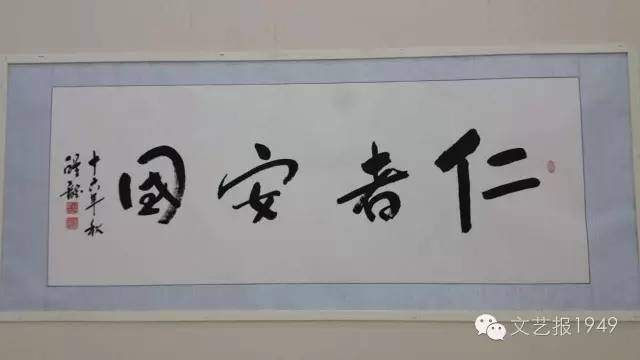 仁者安國
十六年秋
文艺报1949